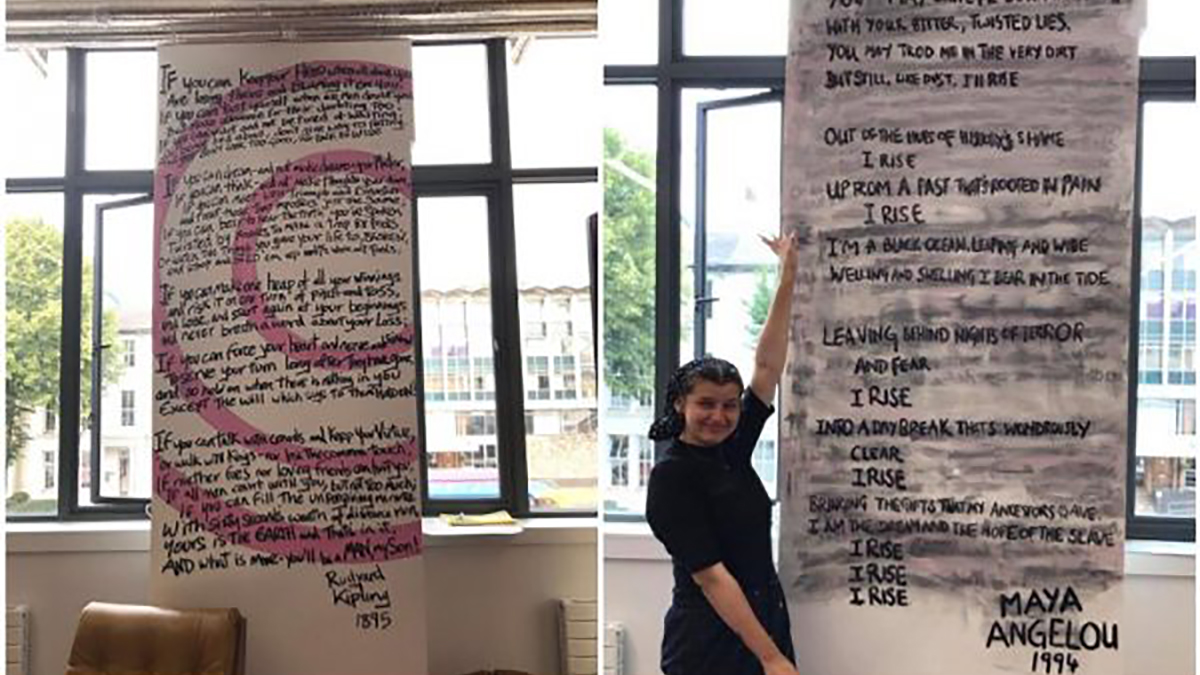 IF you can keep your Head when all about you
Are losing theirs and blaming it on you,
If you can trust yourself when all men doubt you
But make allowance for their doubting too,
If you can wait and not be tired of waiting
If you can dream - and not make dreams your Master,
If you can think - and not make thoughts your aim,
If you can meet with Triumph and Disaster
and treat those two imposters just the same
If you can bear to hear the truth you've spoken
Twisted by to make a trap for fools
Or watch the things you gave your life to, BROKEN,
and stoop and 'em up with worn out tools.
If you can make one heap of all your winnings
and risk it on one turn of pitch and toss,
and lose, and start again at your beginnings
and never breath a word about your Loss;
If you can force your heart and nerve and
To serve your turn long after they are gone,
and so hold on when there is nothing in you
EXCEPT the will which says to them
If you can talk with crowds and keep your Virtue,
or walk with Kings - nor the common touch,
If neither foes nor loving friends can hurt you,
If all men count with you, but not too much;
If you can fill the unforgiving minute
With sixty seconds worth of distance run,
YOURS IS the EARTH and in it,
AND what is more - you'll be a MAN my Son!
Rudyard
Kipling
1895
WITH YOUR BITTER, TWISTED LIES,
YOU MAY TROD ME IN THE VERY DIRT
BUT STILL, LIKE DUST, I'll RISE
OUT OF THE HUTS OF HISTORY'S SHAME
I RISE
UP FROM A PAST THAT'S ROOTED IN PAIN
I RISE
I'M A BLACK OCEAN, LEAPING AND WIDE
WELLING AND SWELLING I BEAR IN THE TIDE.
LEAVING BEHIND NIGHTS OF TERROR
AND FEAR
I RISE
INTO A DAYBREAK THATS WONDROUSLY
CLEAR
I RISE
BRINGING THE GIFTS THAT MY ANCESTORS GAVE
I AM THE DREAM AND THE HOPE OF THE SLAVE
I RISE
I RISE
I RISE
MAYA
ANGELOU
1994